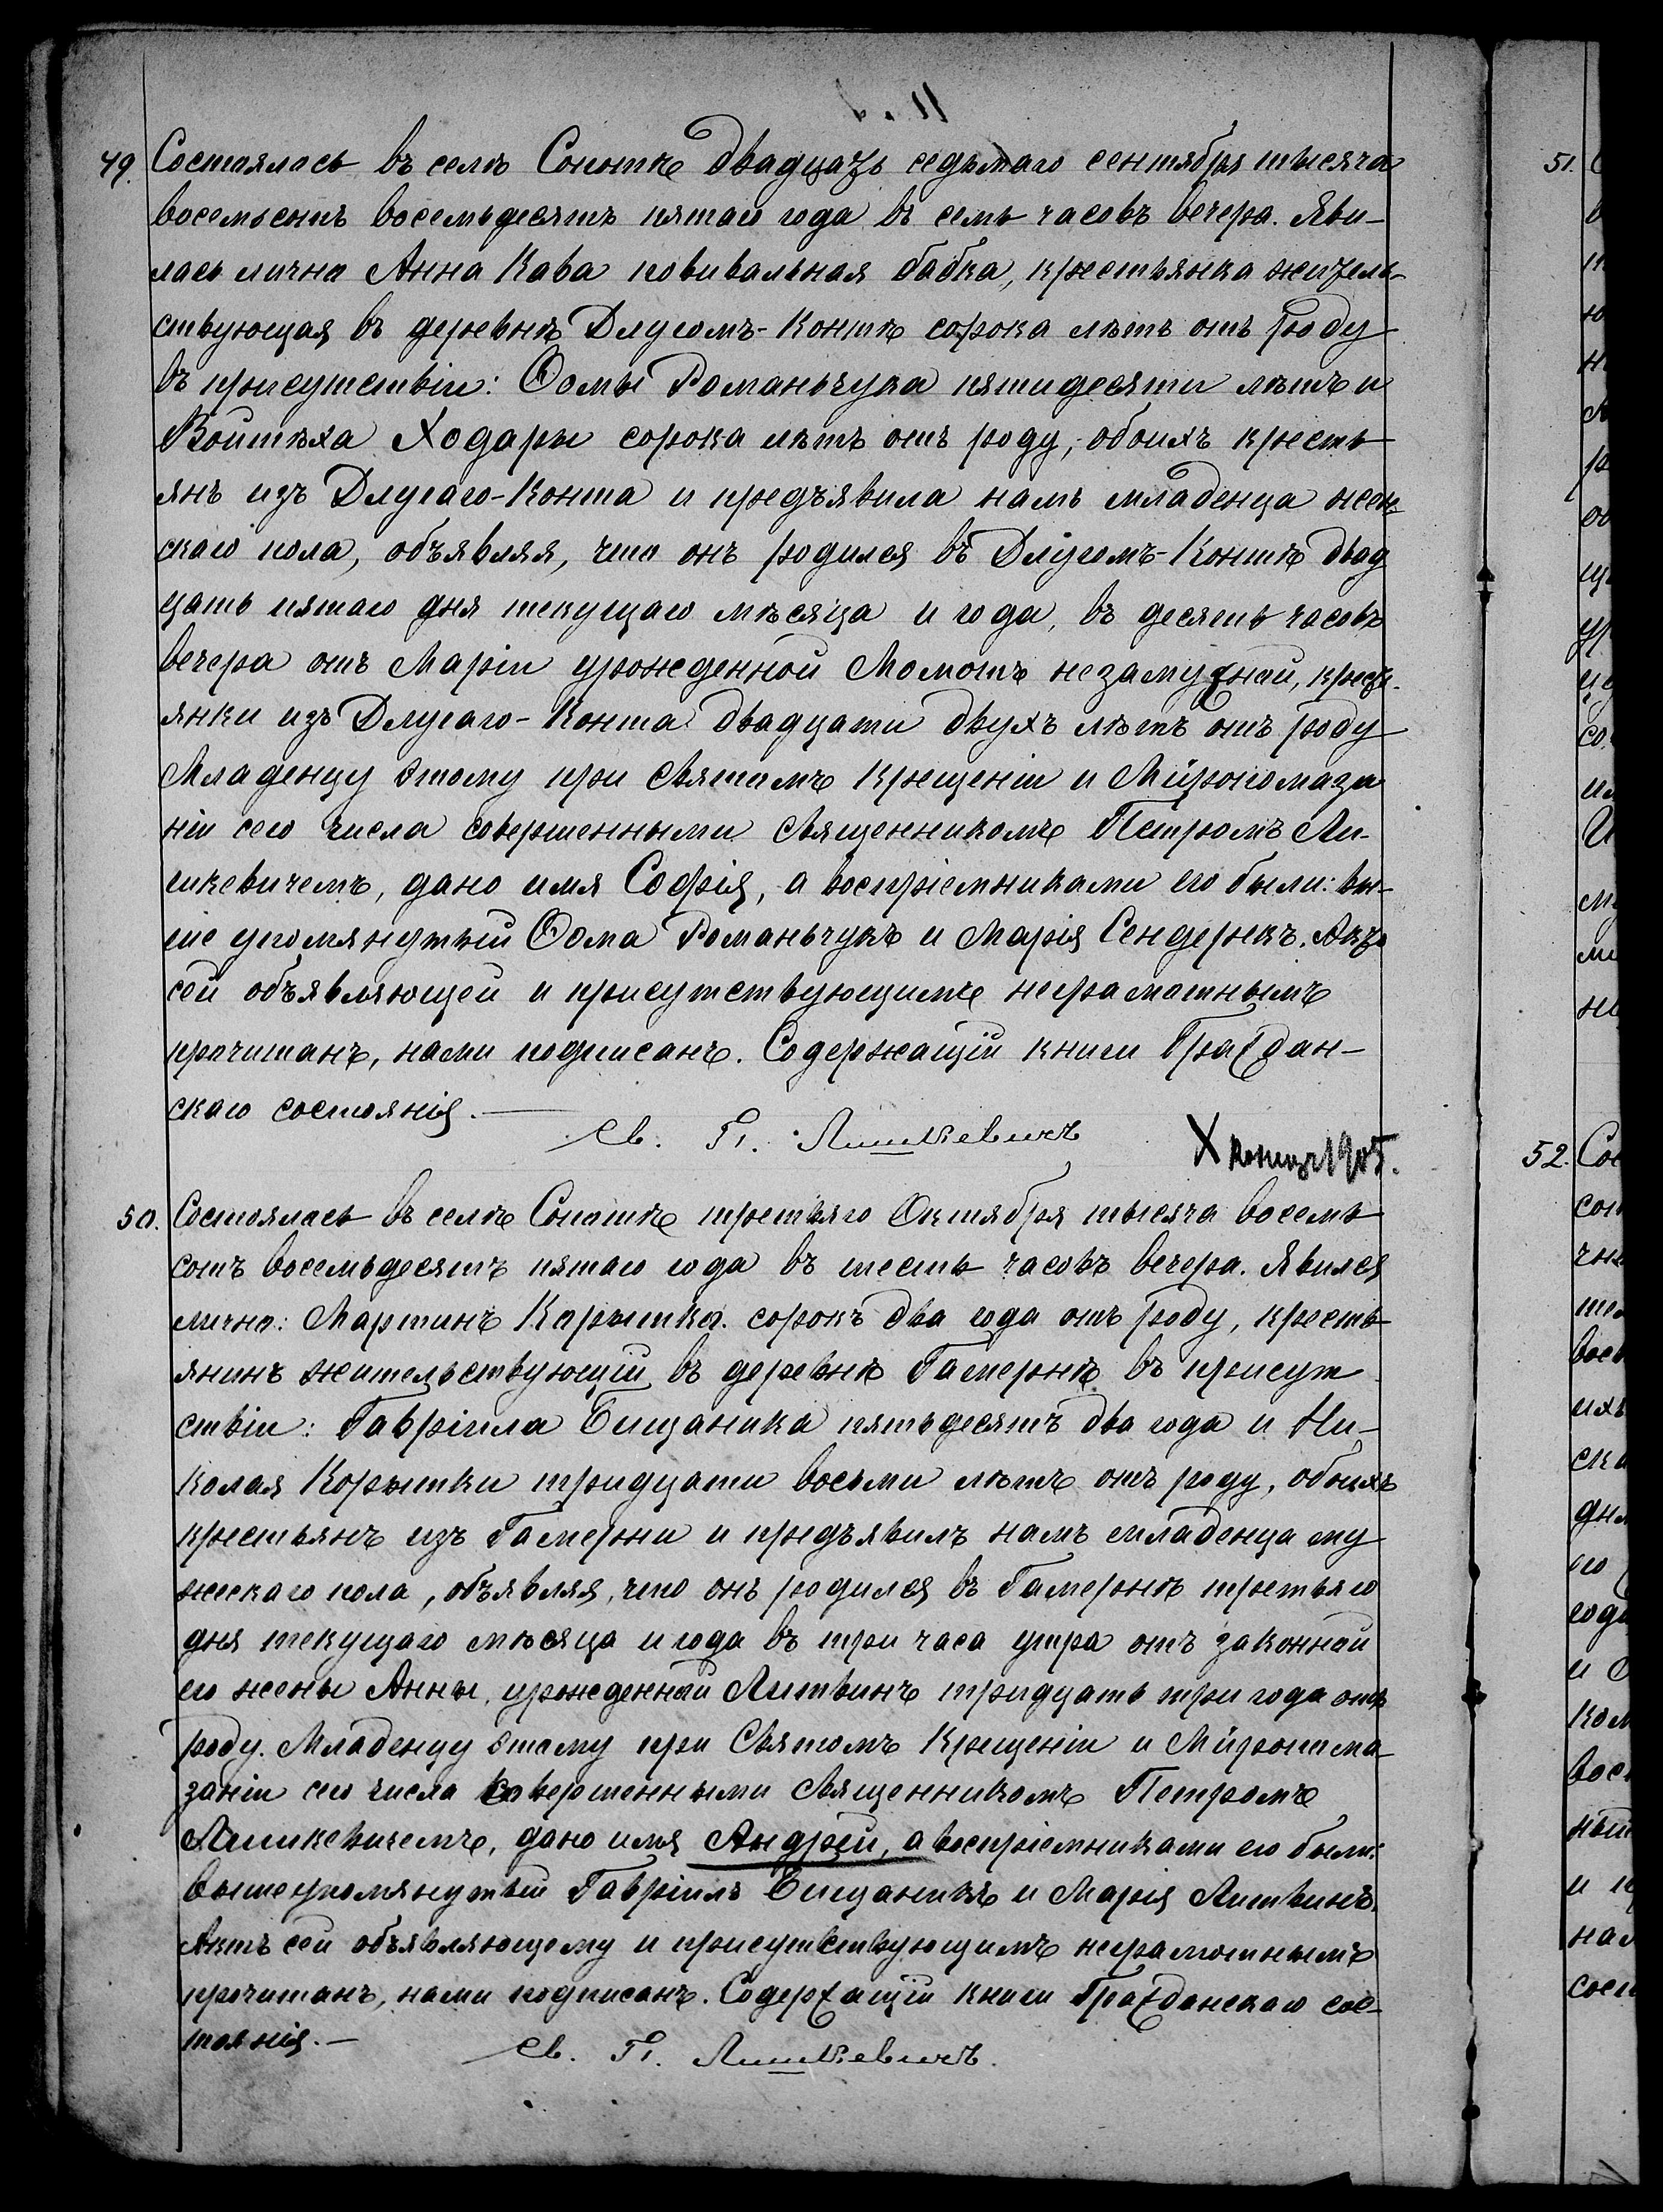 49. Состоялось въ селѣ Сопотѣ двадцать седьмаго сентября тысяча
восемьсотъ восемьдесятъ пятаго года въ семь часовъ вечера. Яви-
лась лично Анна Кава повивальная бабка, крестьянка житель-
ствующая въ деревнѣ Длугомъ-Контѣ сорока лѣтъ отъ роду
въ присутствіи: Ѳомы Романьчука пятидесяти лѣтъ и
Войтѣха Ходары сорока лѣтъ отъ роду, обоихъ кресть-
янъ изъ Длугаго-Конта и предъявила намъ младенца жен-
скаго пола, объявляя, что онъ родился въ Длугомъ-Контѣ двад
цать пятаго дня текущаго мѣсяца и года, въ десять часовъ
вечера отъ Маріи урожденной Момотъ незамужной, кресть-
янки изъ Длугаго-Конта двадцати двухъ лѣтъ отъ роду
Младенцу этому при Святомъ Крещеніи и Мѵропомаза
ніи сего числа совершенными Священникомъ Петромъ Ли-
шкевичемъ, дано имя Софія, а воспріемниками его были: вы-
ше упомянутый Ѳома Романьчукъ и Марія Сендерекъ. Актъ
сей объявляющей и присутствующимъ неграмотнымъ
прочитанъ, нами подписанъ. Содержащій книги Граждан-
скаго состоянія.—
Св. П. Лишкевичъ
X 1905.
50. Состоялось въ селѣ Сопотѣ третьяго Октября тысяча восемь
сотъ восемьдесятъ пятаго года въ шесть часовъ вечера. Явился
лично: Мартинъ Корытко сорокъ два года отъ роду, кресть-
янинъ жительствующій въ деревнѣ Гамернѣ въ присут
ствіи: Гавріила Бищаника пятьдесятъ два года и Ни-
колая Корытки тридцати восьми лѣтъ отъ роду, обоихъ
крестьянъ изъ Гамерни и предъявилъ намъ младенца му
жескаго пола, объявляя, что онъ родился въ Гамернѣ третьяго
дня текущаго мѣсяца и года въ три часа утра отъ законной
его жены Анны, урожденной Литвинъ тридцать три года отъ
роду. Младенцу этому при Святомъ Крещеніи и Мѵропома-
заніи сего числа совершенными Священникомъ Петромъ
Лишкевичемъ, дано имя Андрей, а воспріемниками его были:
вышеупомянутый Гавріилъ Бищаникъ и Марія Литвинъ.
Актъ сей объявляющему и присутствующимъ неграмотнымъ
прочитанъ, нами подписанъ. Содержащій книги Гражданскаго сос-
тоянія.—
Св. П. Лишкевичъ.
51.
52.